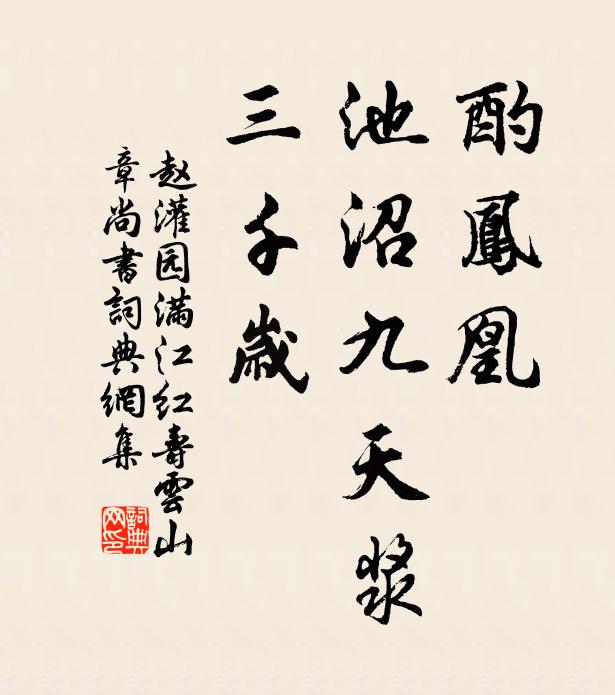 酌鳳凰
池沼九天漿
三千歲
赵灌园满江红壽雲山
章尚書詞典網集
詞典
网印